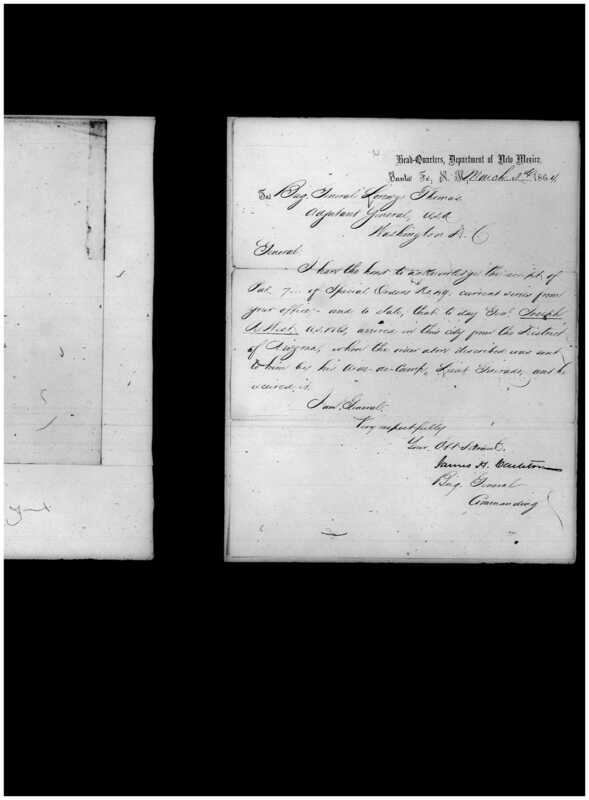 Head-Quarters, Department of New Mexico,
Santa Fe, N. M., March 2d 1864
To Brig. General Lorenzo Thomas,
Adjutant General, USA
Washington D. C.
General:
I have the honor to acknowledge the receipt of
Par. 7 of Special Orders No. current series from
your office - and to state, that to day Genl Joseph
R. West, U.S. Vols, arrived in this city from the District
of Arizona, when the order above described was sent
to him by his Aide-de-Camp, Lieut and he
received it.
I am, General,
Very respectfully
Your Obt Servant,
James H. Carleton
Brig. General
Commanding